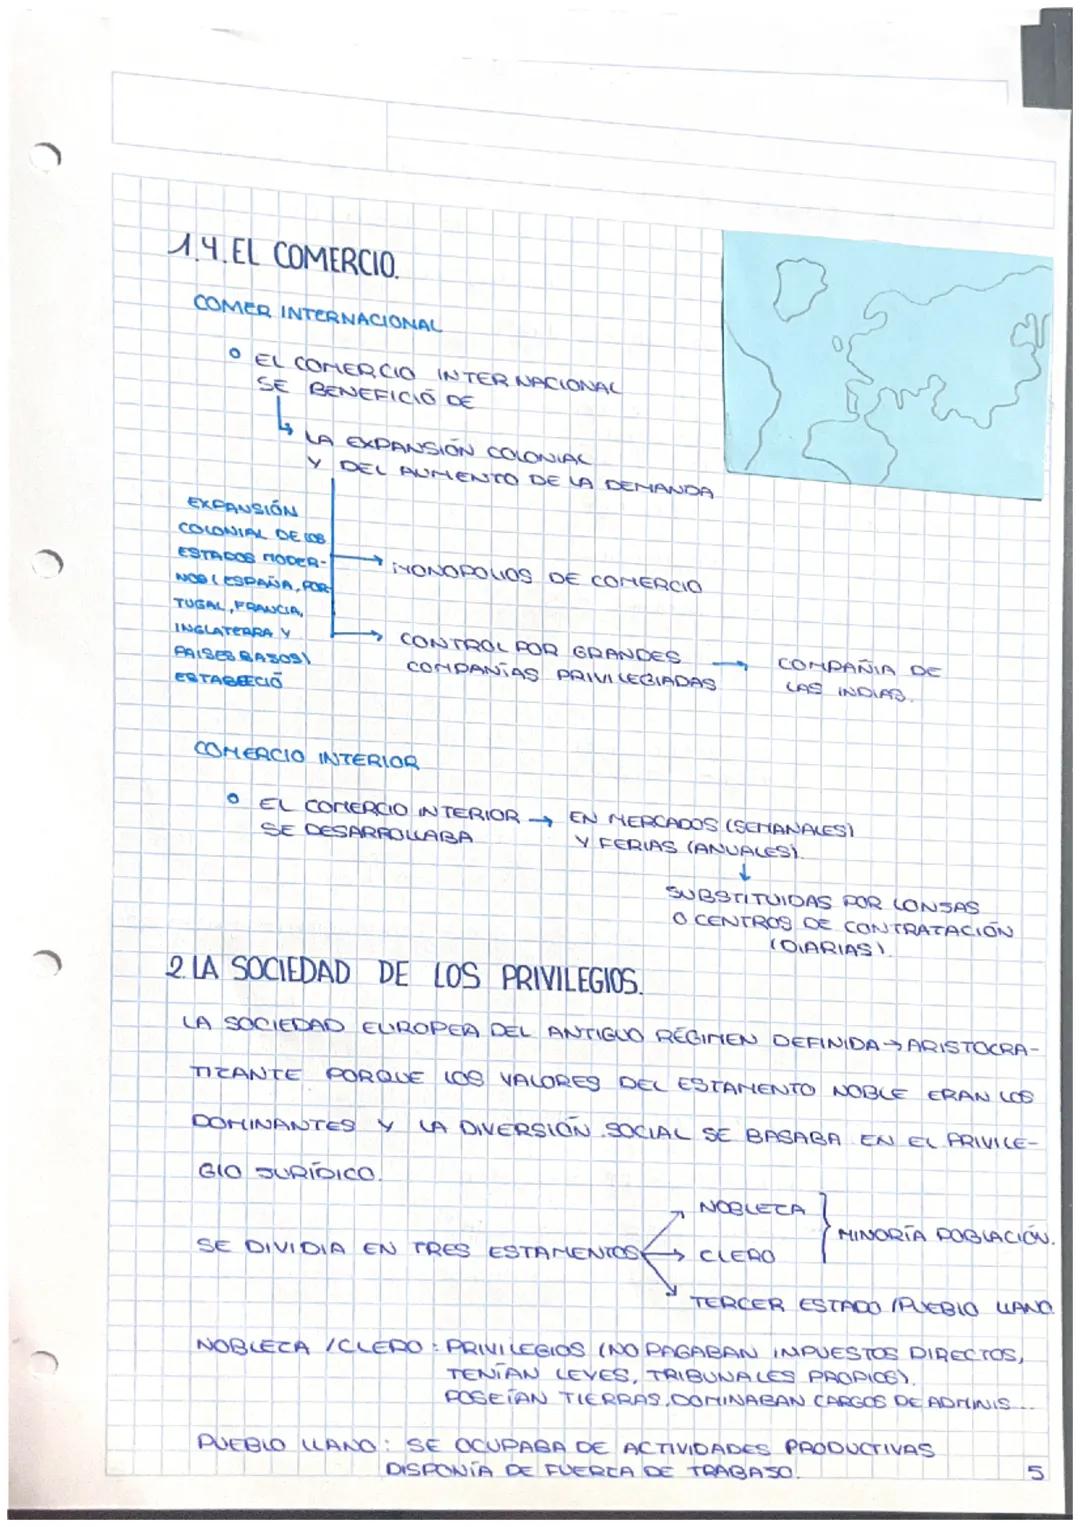 1.4. EL COMERCIO.
COMER INTERNACIONAL
EL COMERCIO INTERNACIONAL
SE BENEFICIÓ DE
LA EXPANSIÓN COLONIAL
Y DEL AUMENTO DE LA DEMANDA
EXPANSIÓN
COLONIAL DE LOS
ESTADOS MODER-
NOS (ESPAÑA, POR-
TUGAL, FRANCIA,
INGLATERRA Y
PAISES BAJOS)
ESTABLECIÓ
→ MONOPOLIOS DE COMERCIO
→ CONTROL POR GRANDES
COMPANÍAS PRIVILEGIADAS
→ COMPAÑIA DE
LAS INDIAS.
COMERCIO INTERIOR
EL COMERCIO INTERIOR → EN MERCADOS (SEMANALES)
SE DESARROLLABA Y FERIAS (ANUALES).
SUBSTITUIDAS POR LONJAS
O CENTROS DE CONTRATACIÓN
(DIARIAS).
2. LA SOCIEDAD DE LOS PRIVILEGIOS.
LA SOCIEDAD EUROPEA DEL ANTIGUO RÉGIMEN DEFINIDA → ARISTOCRA-
TIZANTE PORQUE LOS VALORES DEL ESTAMENTO NOBLE ERAN LOS
DOMINANTES Y LA DIVERSIÓN SOCIAL SE BASABA EN EL PRIVILE-
GIO JURÍDICO.
NOBLEZA
MINORÍA POBLACIÓN.
SE DIVIDIA EN TRES ESTAMENTOS → CLERO
TERCER ESTADO / PUEBLO LLANO
NOBLEZA / CLERO: PRIVILEGIOS (NO PAGABAN IMPUESTOS DIRECTOS,
TENÍAN LEYES, TRIBUNALES PROPIOS).
POSEÍAN TIERRAS, DOMINABAN CARGOS DE ADMINIS...
PUEBLO LLANO: SE OCUPABA DE ACTIVIDADES PRODUCTIVAS
DISPONÍA DE FUERZA DE TRABAJO.
5